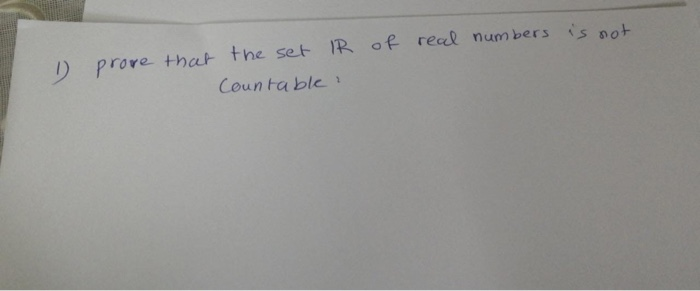 1) prove that the set IR of real numbers is not
Countable: